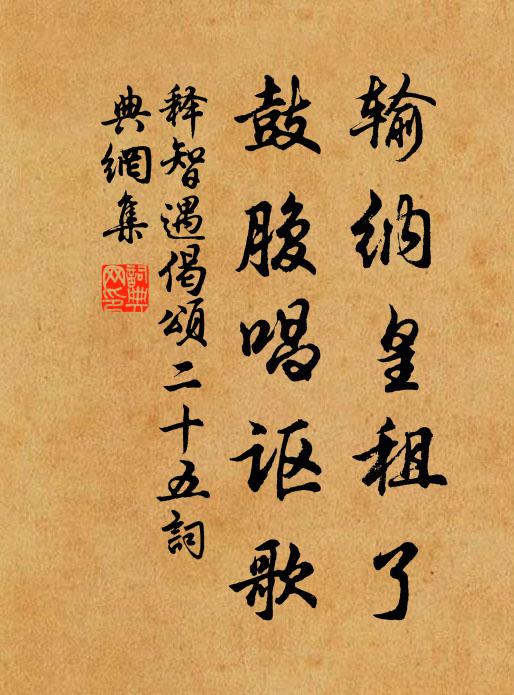 输纳皇租了
鼓腹唱讴歌
释智遇偈颂二十五詞
典網集
詞典
网印